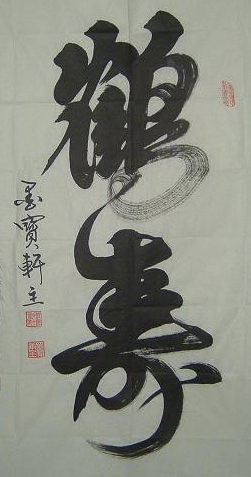 鶴壽
墨寶軒主